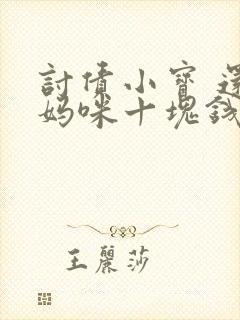 討債小寶 還
媽咪十塊錢
王麗莎